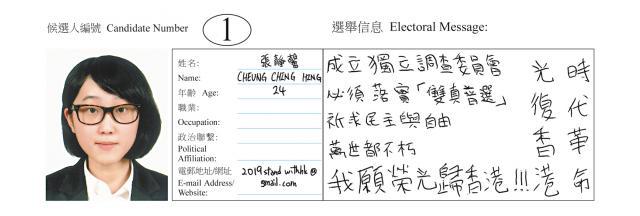 候選人編號 Candidate Number 1
選舉信息 Electoral Message:
姓名: 張靜馨
Name: CHEUNG CHING HING
年齡 Age: 24
職業:
Occupation:
政治聯繫:
Political
Affiliation:
電郵地址/網址
E-mail Address/
Website:
2019standwithhk@
gmail.com
成立獨立調查委員會
必須落實「雙真普選」
祈求民主與自由
萬世都不朽
我願榮光歸香港!!!
光復香港
時代革命